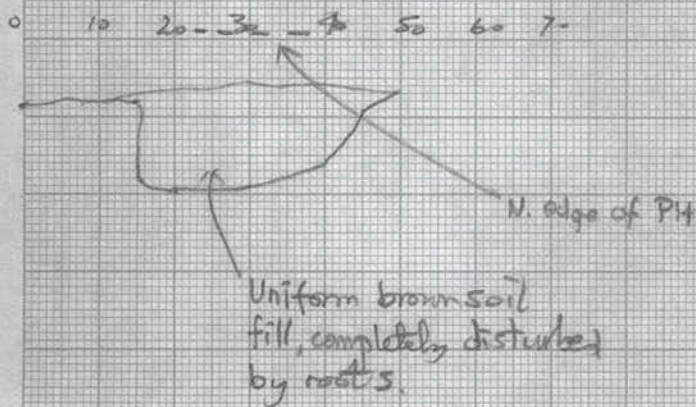 0 10 20 30 40 50 60 70
N. edge of PH
Uniform brown soil
fill, completely disturbed
by roots.